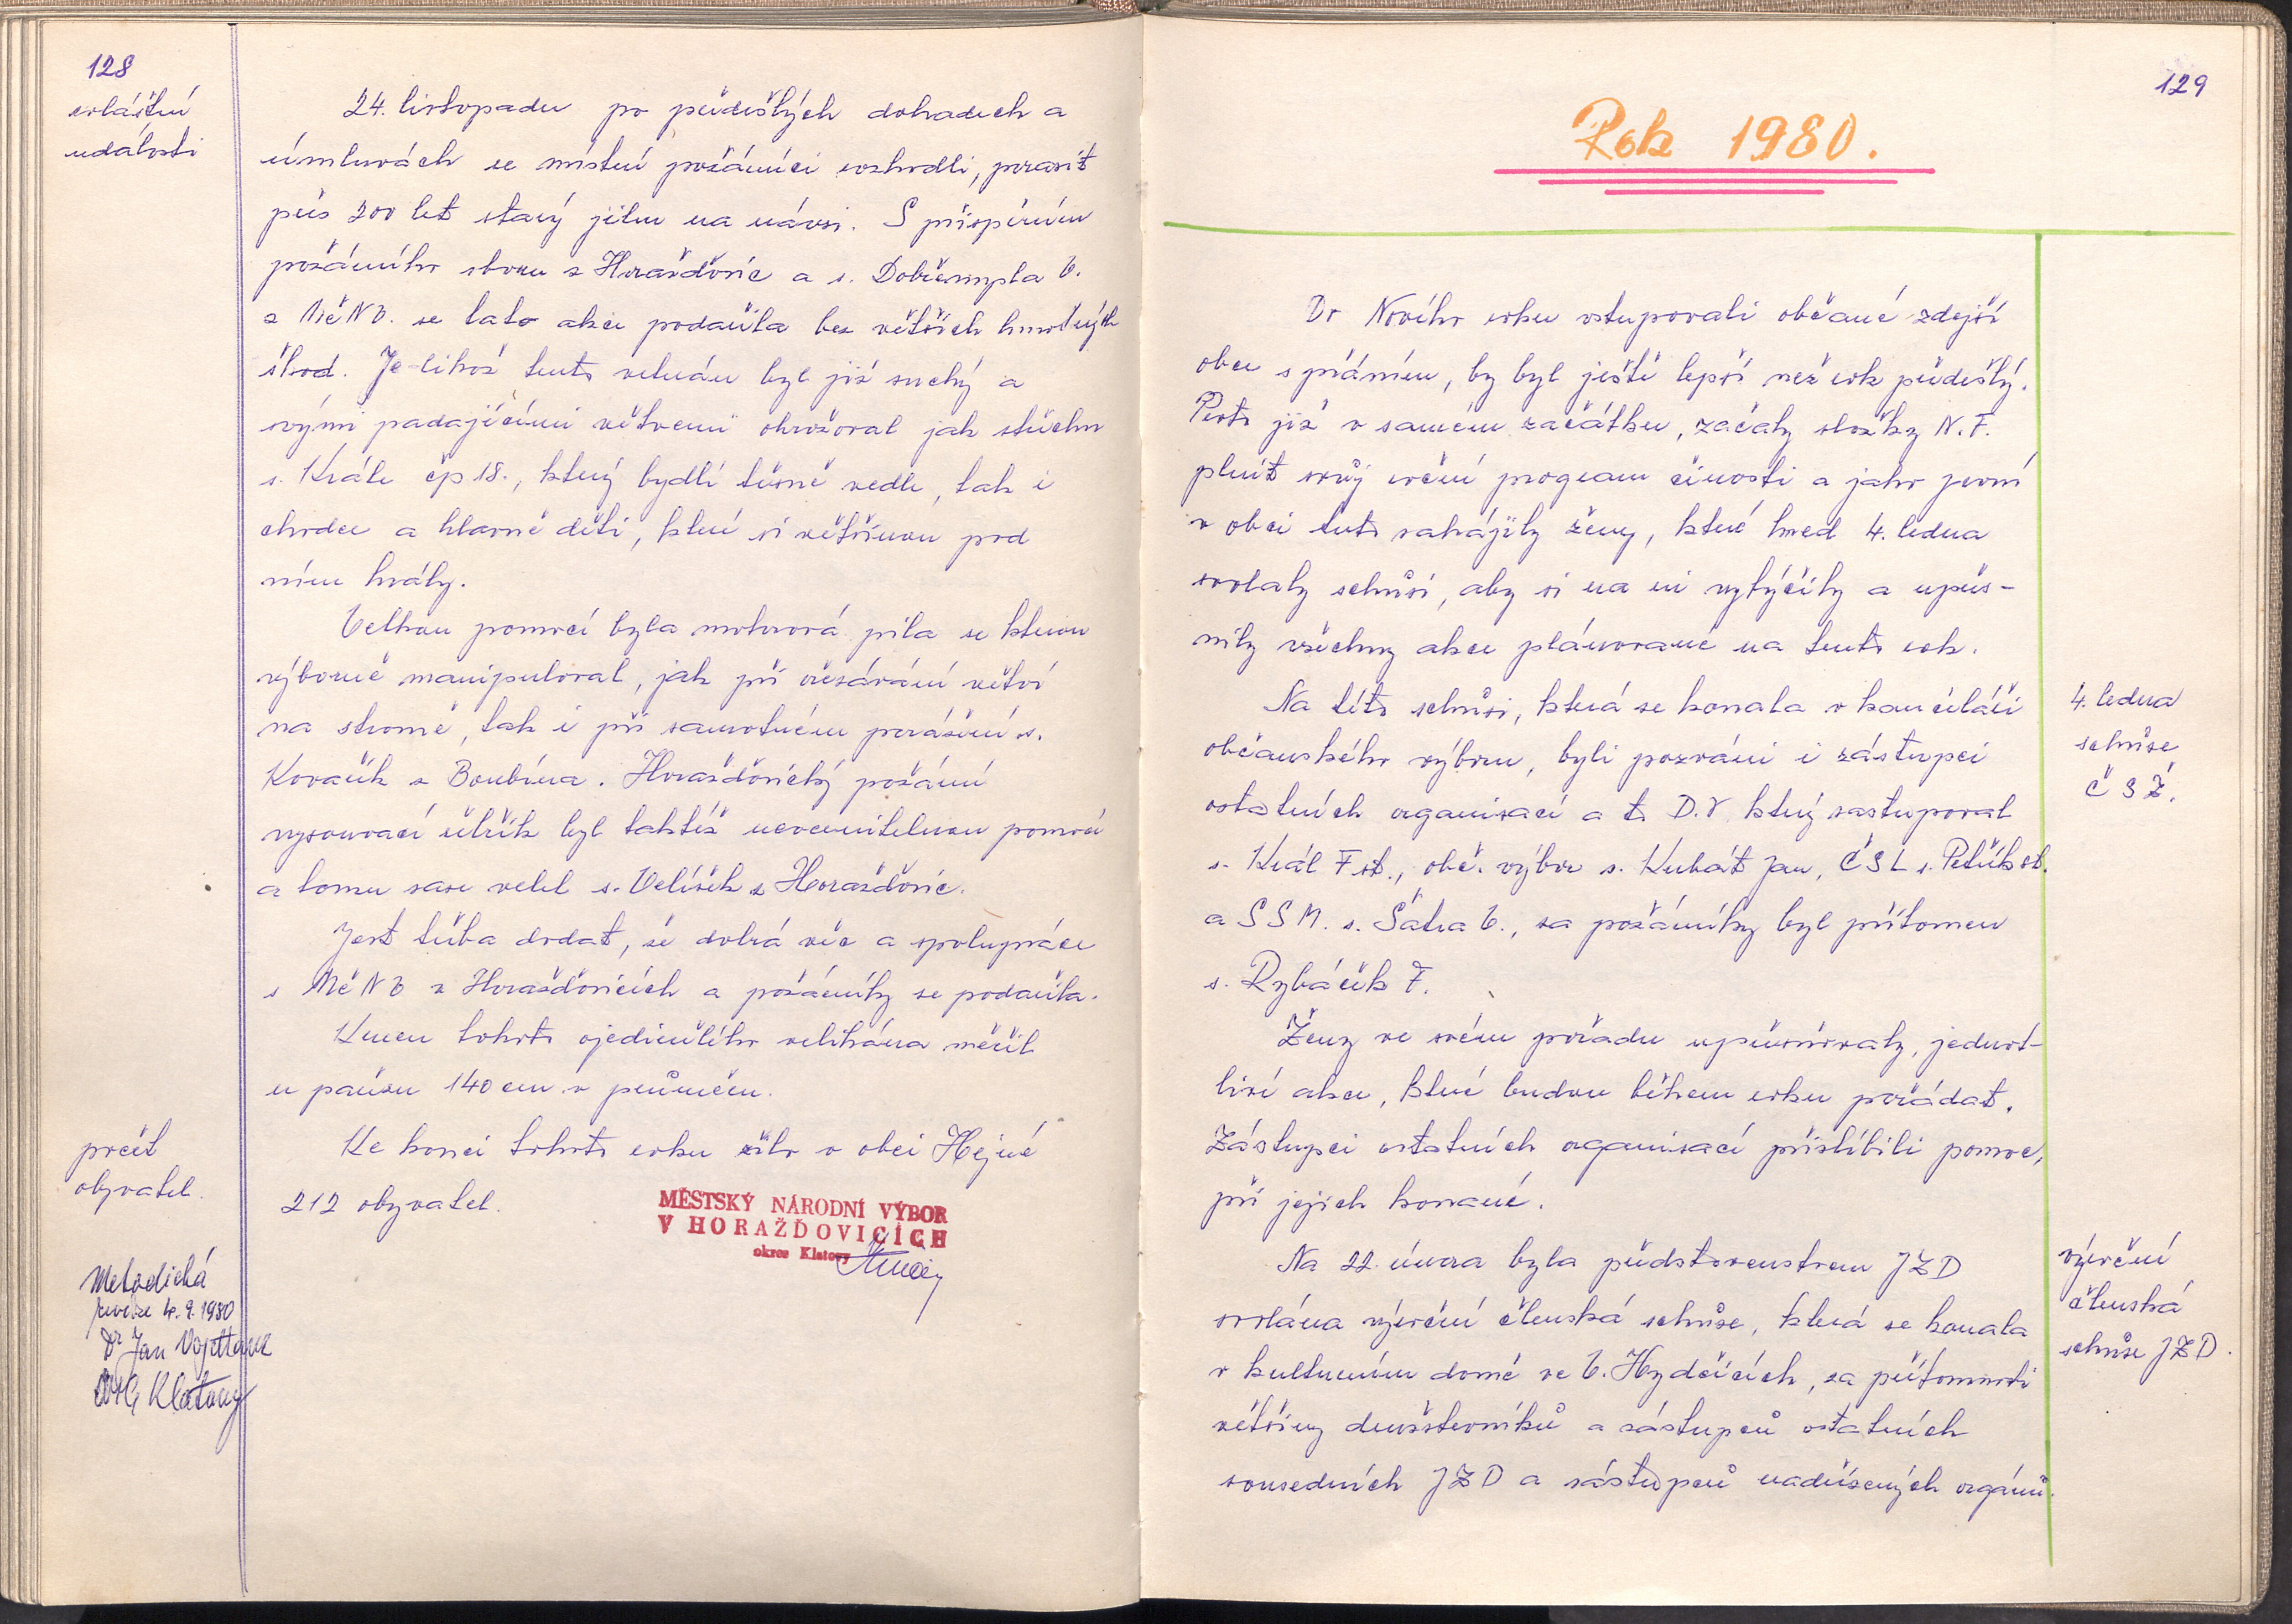 128
zvláštní
události
24. listopadu po předešlých dohadech a
úmluvách se místní požárníci rozhodli, porazit
přes 200 let starý jilm na návsi. S přispěním
požárního sboru z Horažďovic a s. Dobřemysla V.
z MěNV. se tato akce podařila bez větších hmotných
škod. Jelikož tento velikán byl již suchý a
svými padajícími větvemi ohrožoval jak střechu
s. Krále čp 18., který bydlí těsně vedle, tak i
chodce a hlavně děti, které si většinou pod
ním hrály.
Velkou pomocí byla motorová pila se kterou
výborně manipuloval, jak při ořezávání větví
na stromě, tak i při samotném porážení s.
Kovařík z Boubína. Horažďovický požární
vysouvací žebřík byl taktéž neocenitelnou pomocí
a tomu zase velel s. Velíšek z Horažďovic.
Jest třeba dodat, že dobrá věc a spolupráce
s MěNV v Horažďovicích a požárníky se podařila.
Kmen tohoto ojedinělého velikána měřil
u pařezu 140 cm v průměru.
počet
obyvatel.
Ke konci tohoto roku žilo v obci Hejné
212 obyvatel.
MĚSTSKÝ NÁRODNÍ VÝBOR
V HORAŽĎOVICÍCH
okres Klatovy
Metodická
revize 4. 9. 1980
Dr Jan
Klatovy
129
Rok 1980.
Do Nového roku vstupovali občané zdejší
obce s přáním, by byl ještě lepší než rok předešlý.
Proto již v samém začátku, začaly složky N. F.
plnit svůj roční program činosti a jako první
v obci tuto zahájily ženy, které hned 4. ledna
svolaly schůzi, aby si na ni vytýčily a upřes-
nily všechny akce plánované na tento rok.
4. ledna
schůze
ČSŽ.
Na této schůzi, která se konala v kanceláři
občanského výboru, byli pozváni i zástupci
ostatních organisací a to D.V. který zastupoval
s. Král F st., obč. výbor s. Kubát Jan, ČSL s. Petřík st.
a SSM. s. Šatra V., za požárníky byl přítomen
s. Rybáček F.
Ženy ve svém pořadu upřesňovaly, jednot-
livé akce, které budou během roku pořádat.
Zástupci ostatních organisací přislíbili pomoc,
při jejich konané.
výroční
členská
schůze JZD.
Na 22. února byla představenstvem JZD
svolána výroční členská schůze, která se konala
v kulturním domě ve V. Hydčicích, za přítomnosti
většiny družstevníků a zástupců ostatních
sousedních JZD a zástupců nadřízených orgánů.